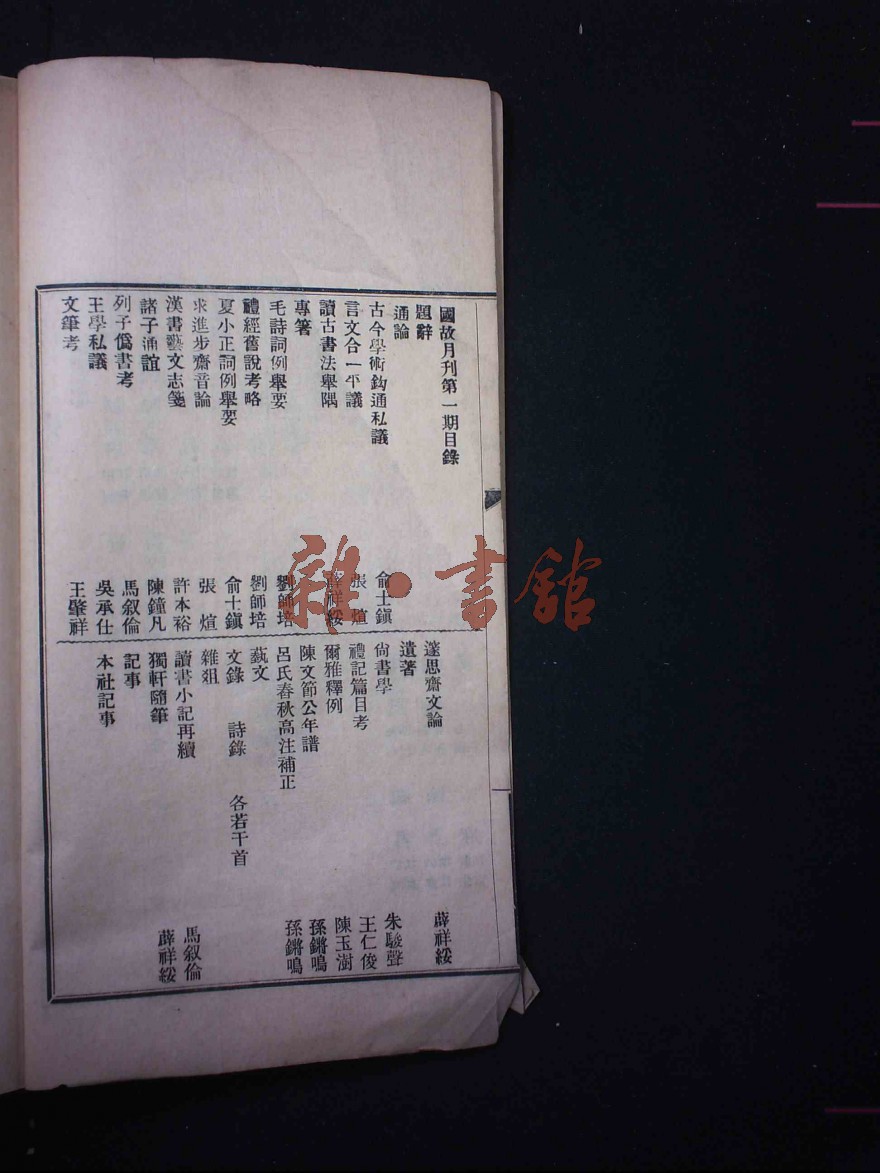 國故月刊第一期目錄
題辭
通論
古今學術鈎通私議 俞士鎮
言文合一平議 張煊
讀古書法舉隅 薛祥綏
專箸
毛詩詞例舉要 劉師培
禮經舊說考略 劉師培
夏小正詞例舉要 俞士鎮
求進步齋音論 張煊
漢書藝文志箋 許本裕
諸子通誼 陳鐘凡
列子僞書考 馬叙倫
王學私議 吳承仕
文筆考 王肇祥
邃思齋文論 薛祥綏
遺著
尙書學 朱駿聲
禮記篇目考 王仁俊
爾雅釋例 陳玉澍
陳文節公年譜 孫鏘鳴
呂氏春秋高注補正 孫鏘鳴
藝文
文錄 詩錄 各若干首
雜俎
讀書小記再續 馬叙倫
獨軒隨筆 薛祥綏
記事
本社記事
雜·書館